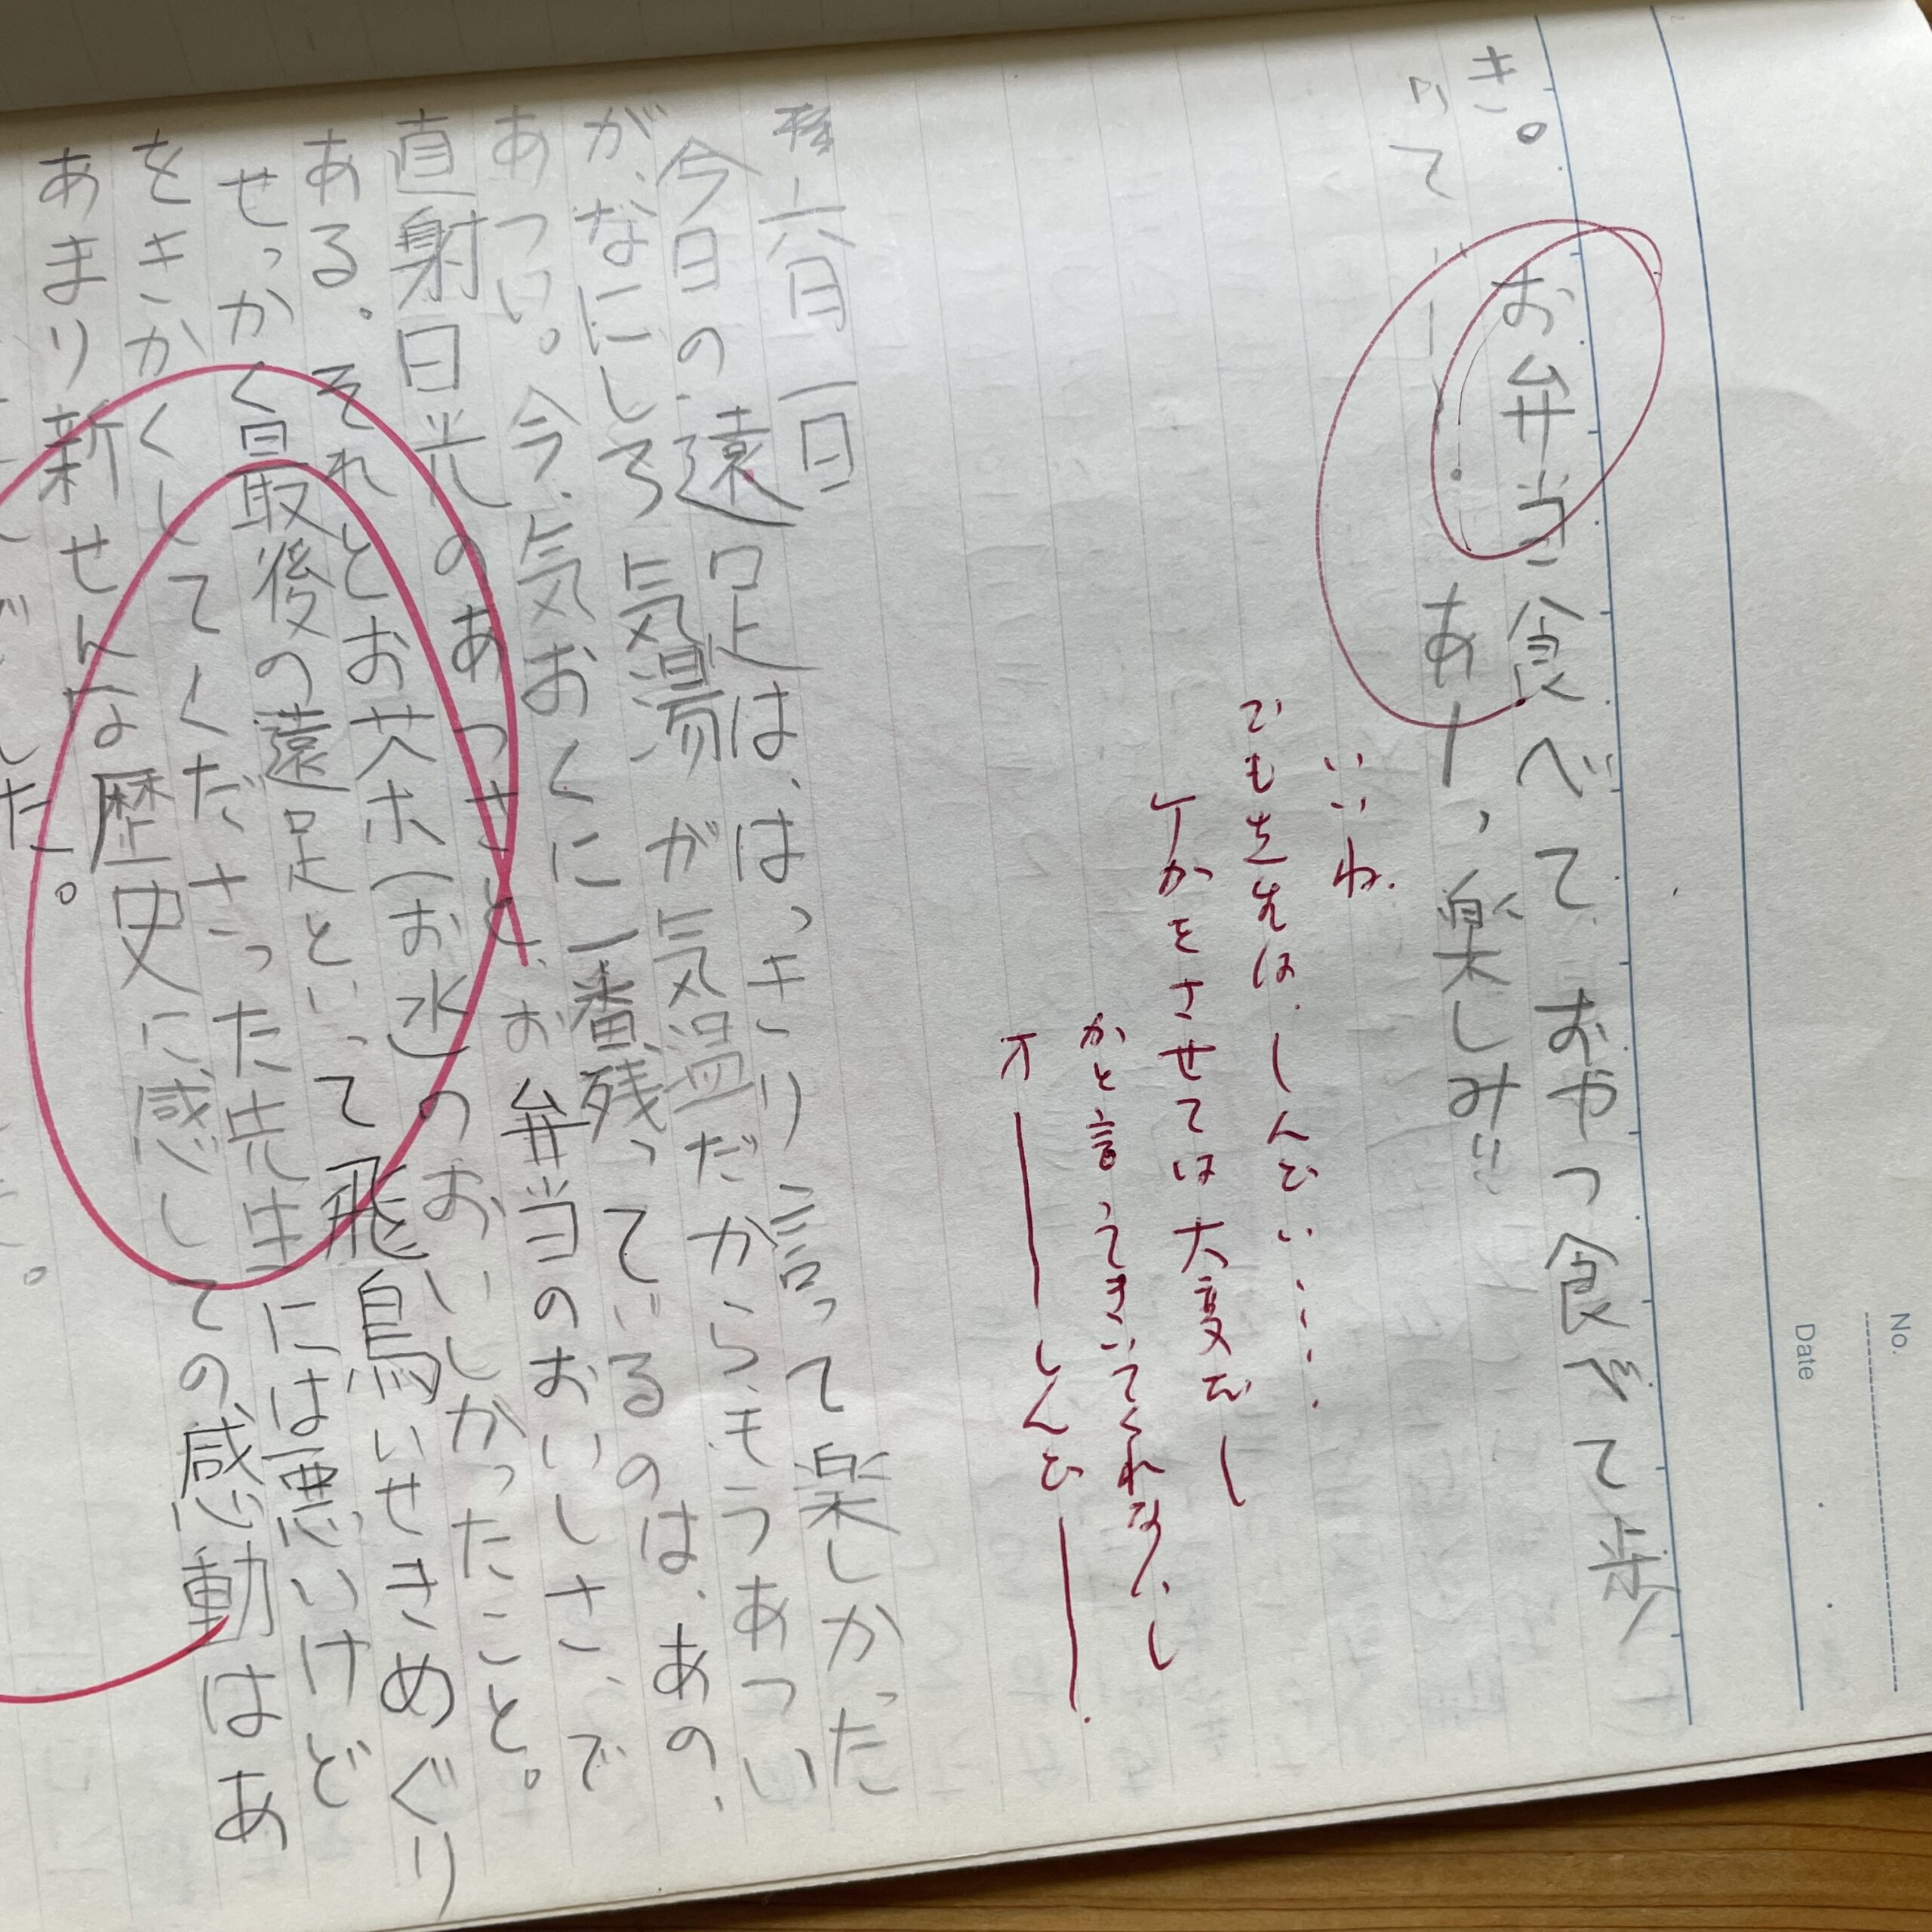 No.
Date
お弁当食べて、おやつ食べて歩
き。
あー、楽しみ!!
って
いいね。
でも先生は、しんどい……
ケガをさせては大変だし
かと言ってきいてくれないし
オーしんどー。
六月一日
今日の遠足は、はっきり言って楽しかった
が、なにしろ気湯が気温だからもうあつい
あつい。今、気おくに一番残っているのは、あの、
直射日光のあつさと、お弁当のおいしさ、で
ある。それとお茶(お水)のおいしかったこと。
せっかく最後の遠足といって飛鳥いせきめぐり
をきかくしてくださった先生には悪いけど
あまり新せんな歴史に感しての感動はあ
した。